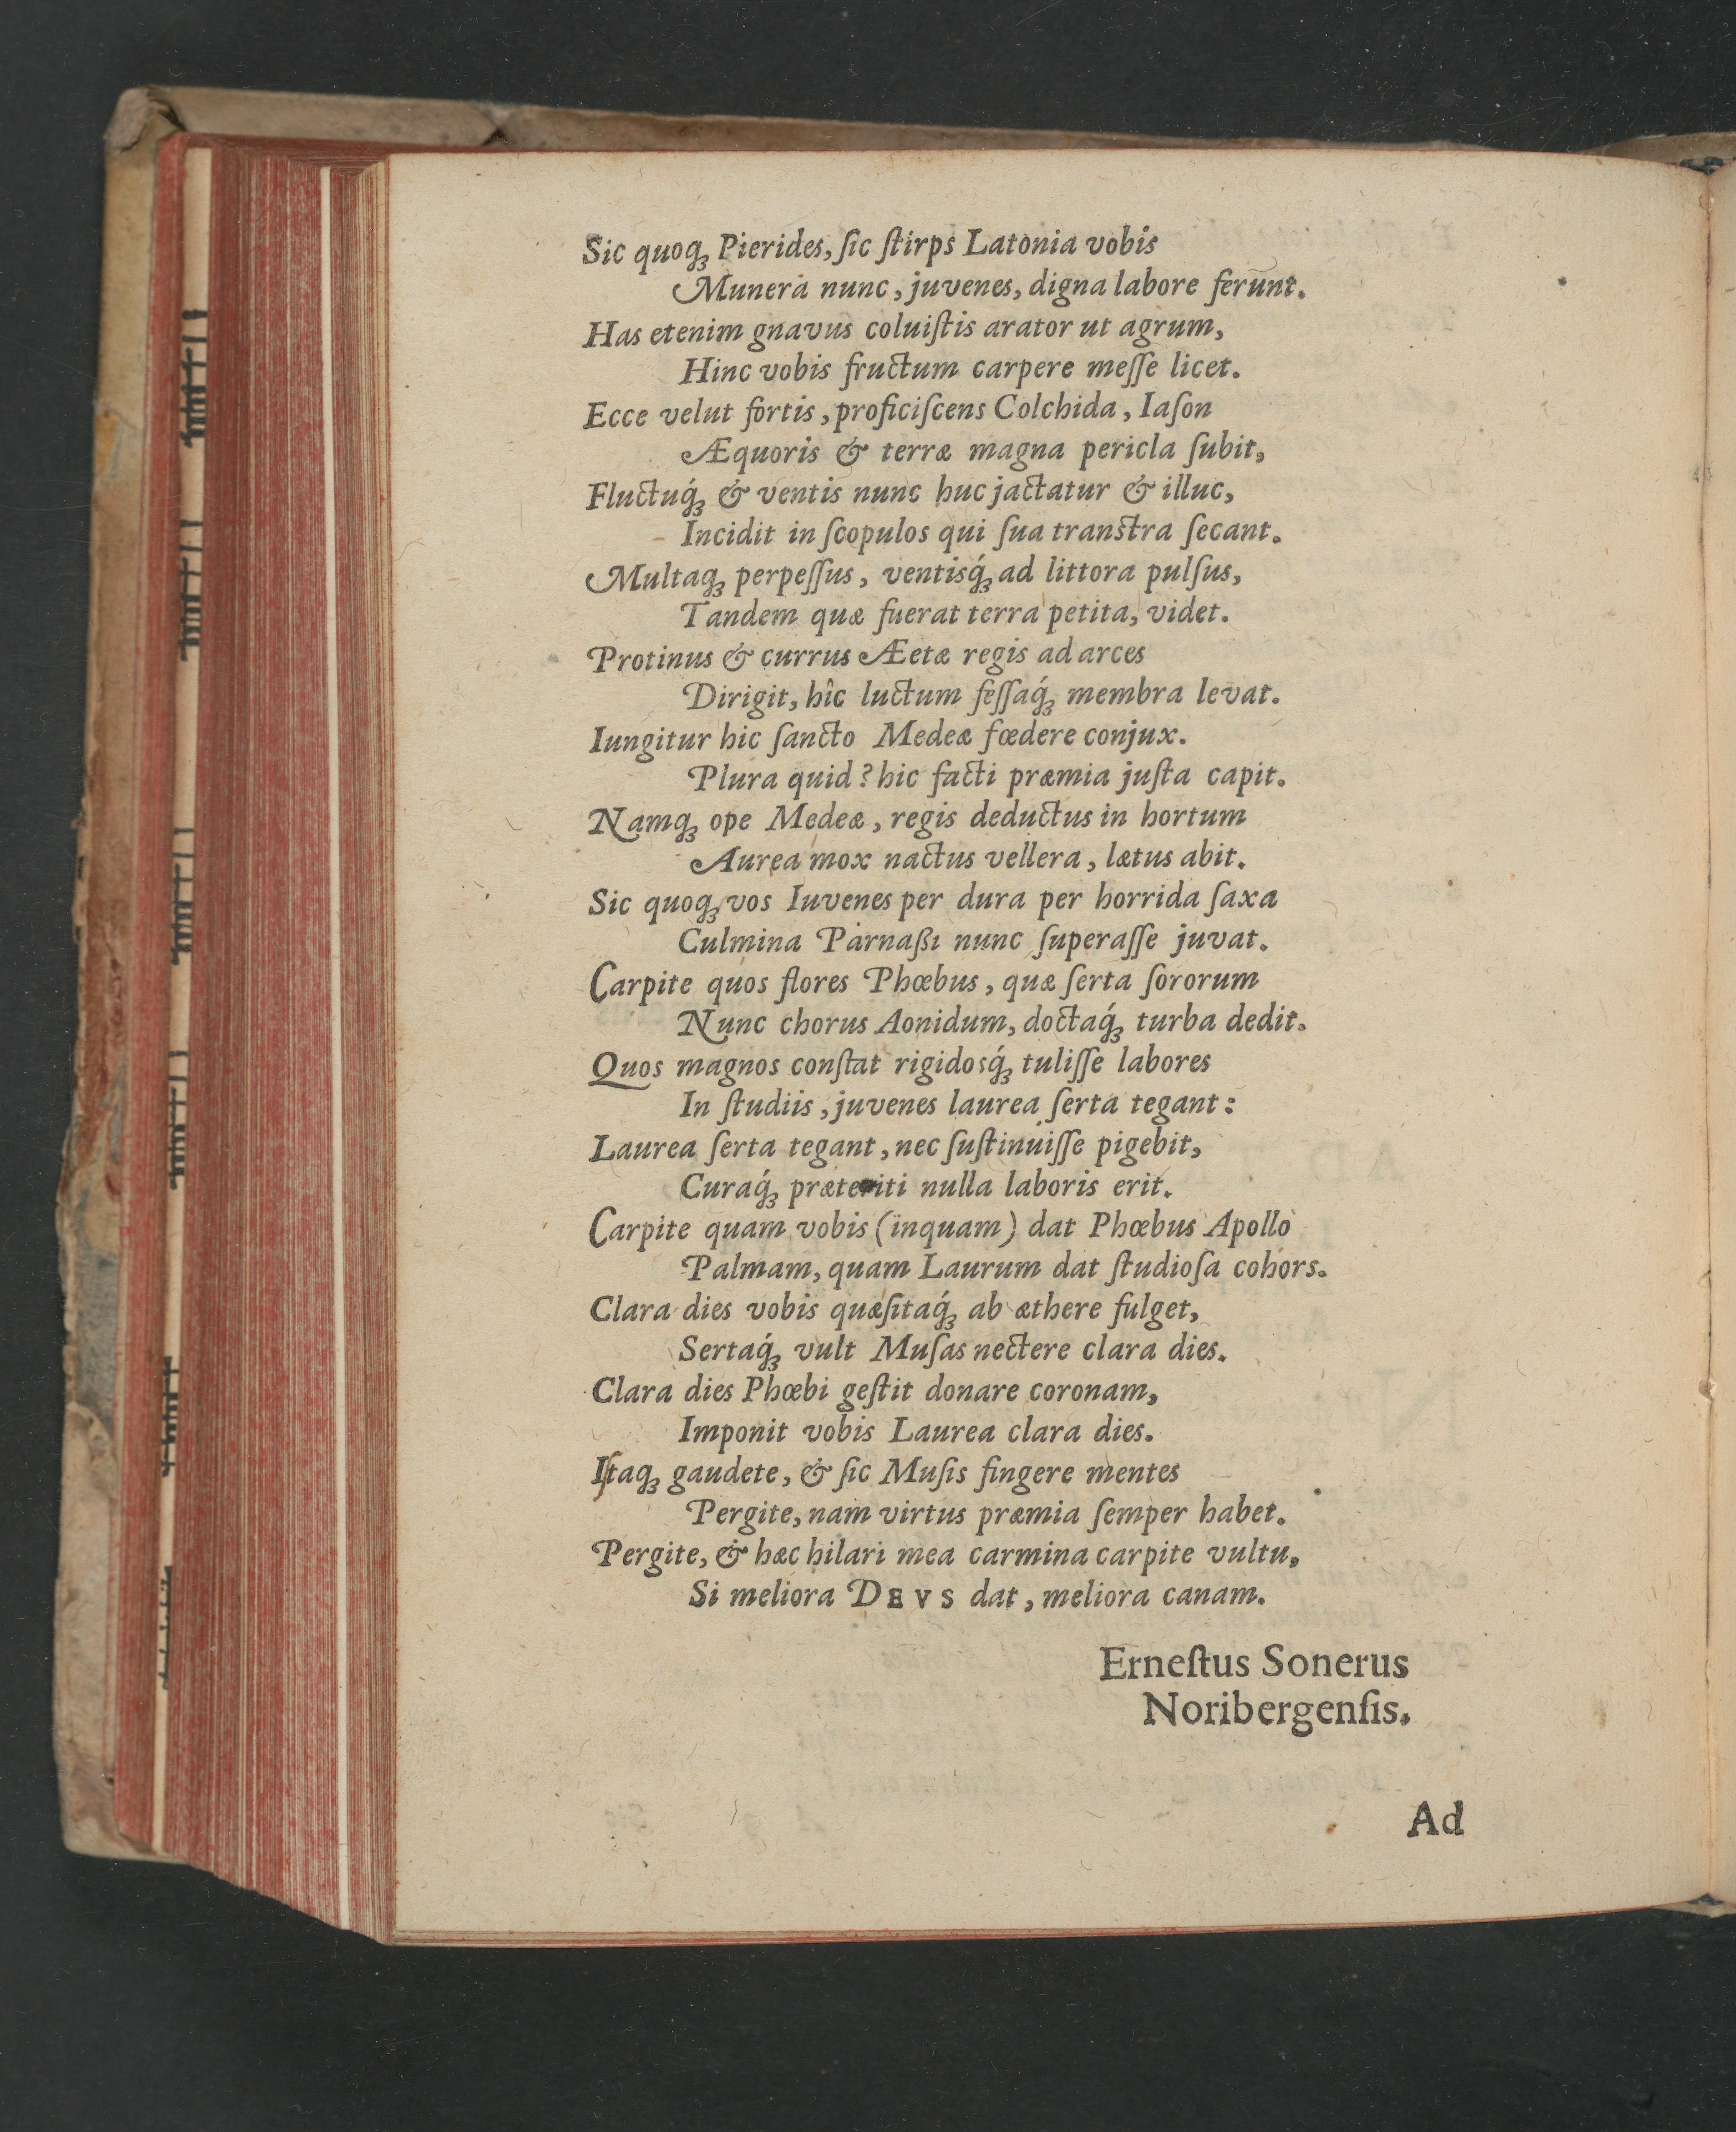 Sic quoq́ꝫ Pierides, ſic ſtirps Latonia vobis
Munera nunc, juvenes, digna labore ferunt.
Has etenim gnavus coluiſtis arator ut agrum,
Hinc vobis fructum carpere meſſe licet.
Ecce velut fortis, proficiſcens Colchida, Iaſon
Æquoris & terræ magna pericla ſubit,
Fluctuq́ꝫ & ventis nunc huc jactatur & illuc,
Incidit in ſcopulos qui ſua tranſtra ſecant.
Multaqꝫ perpeſſus, ventisq́ꝫ ad littora pulſus,
Tandem quæ fuerat terra petita, videt.
Protinus & currus Æetæ regis ad arces
Dirigit, hîc luctum feſſaq́ꝫ membra levat.
Iungitur hic ſancto Medeæ fœdere conjux.
Plura quid? hic facti præmia juſta capit.
Namqꝫ ope Medeæ, regis deductus in hortum
Aurea mox nactus vellera, lætus abit.
Sic quoqꝫ vos Iuvenes per dura per horrida ſaxa
Culmina Parnaßi nunc ſuperaſſe juvat.
Carpite quos flores Phœbus, quæ ſerta ſororum
Nunc chorus Aonidum, doctaq́ꝫ turba dedit.
Quos magnos conſtat rigidosq́ꝫ tuliſſe labores
In ſtudiis, juvenes laurea ſerta tegant:
Laurea ſerta tegant, nec ſuſtinuiſſe pigebit,
Curaq́ꝫ præteriti nulla laboris erit.
Carpite quam vobis (inquam) dat Phœbus Apollo
Palmam, quam Laurum dat ſtudioſa cohors.
Clara dies vobis quæſitaq́ꝫ ab æthere fulget,
Sertaq́ꝫ vult Muſas nectere clara dies.
Clara dies Phœbi geſtit donare coronam,
Imponit vobis Laurea clara dies.
Itaqꝫ gaudete, & ſic Muſis fingere mentes
Pergite, nam virtus præmia ſemper habet.
Pergite, & hæc hilari mea carmina carpite vultu,
Si meliora DEVS dat, meliora canam.
Erneſtus Sonerus
Noribergenſis.
Ad